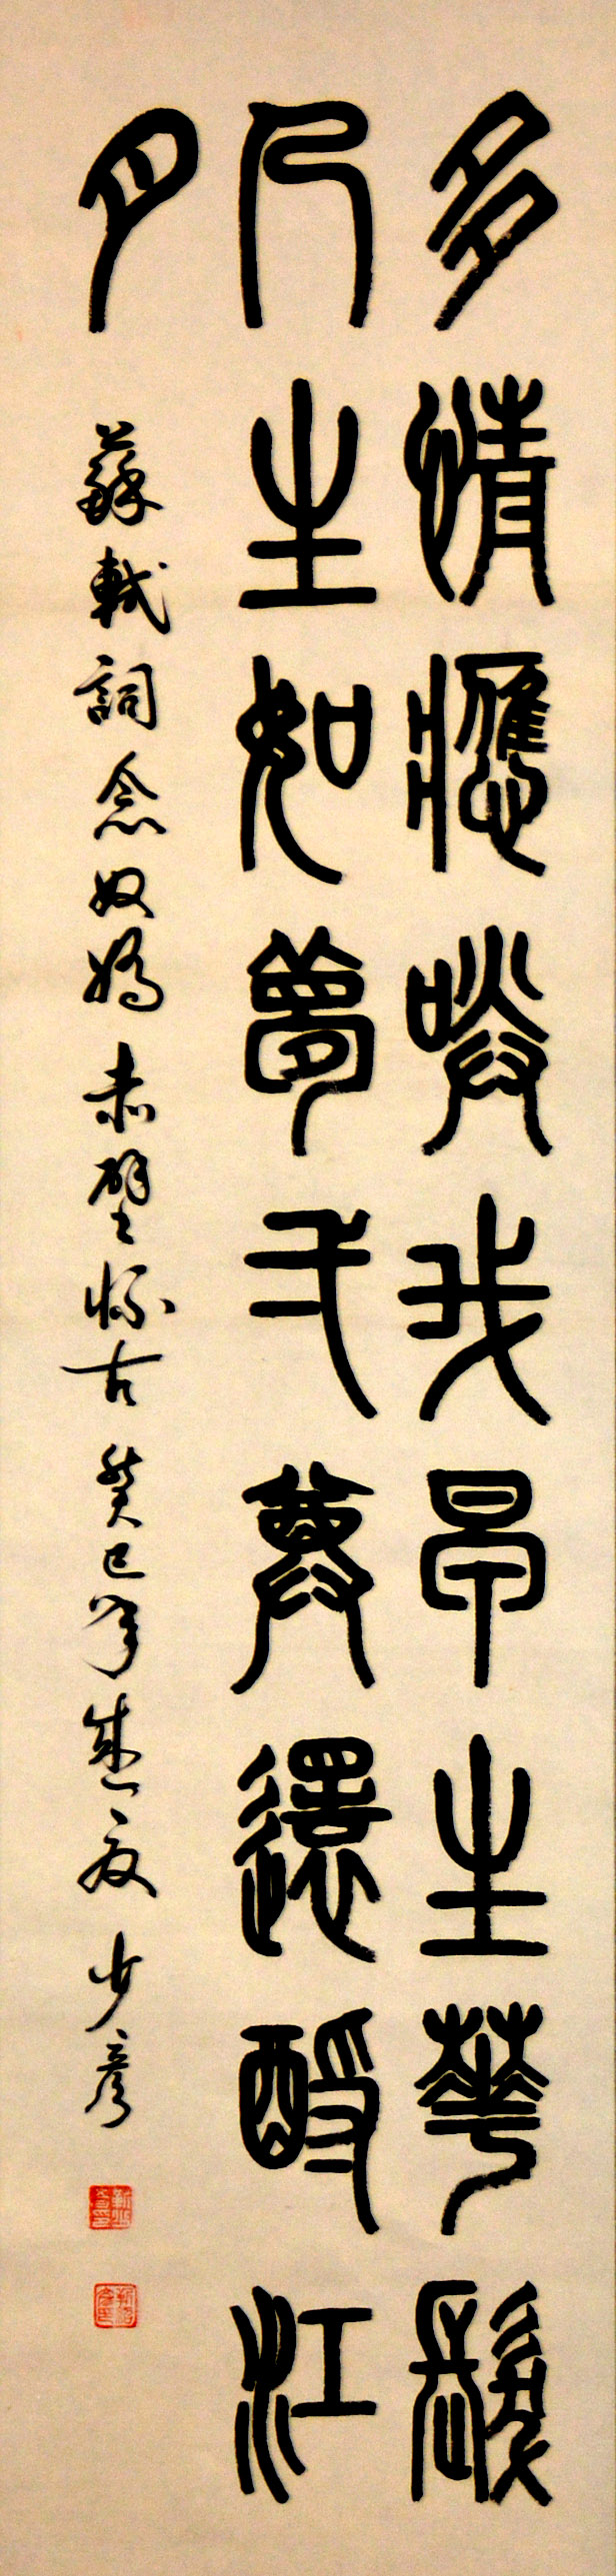 多情應咲我早生華髮
人生如夢弌尊還酹江
月 蘇軾詞念奴嬌 赤壁懷古 癸巳年盛夏 少彥